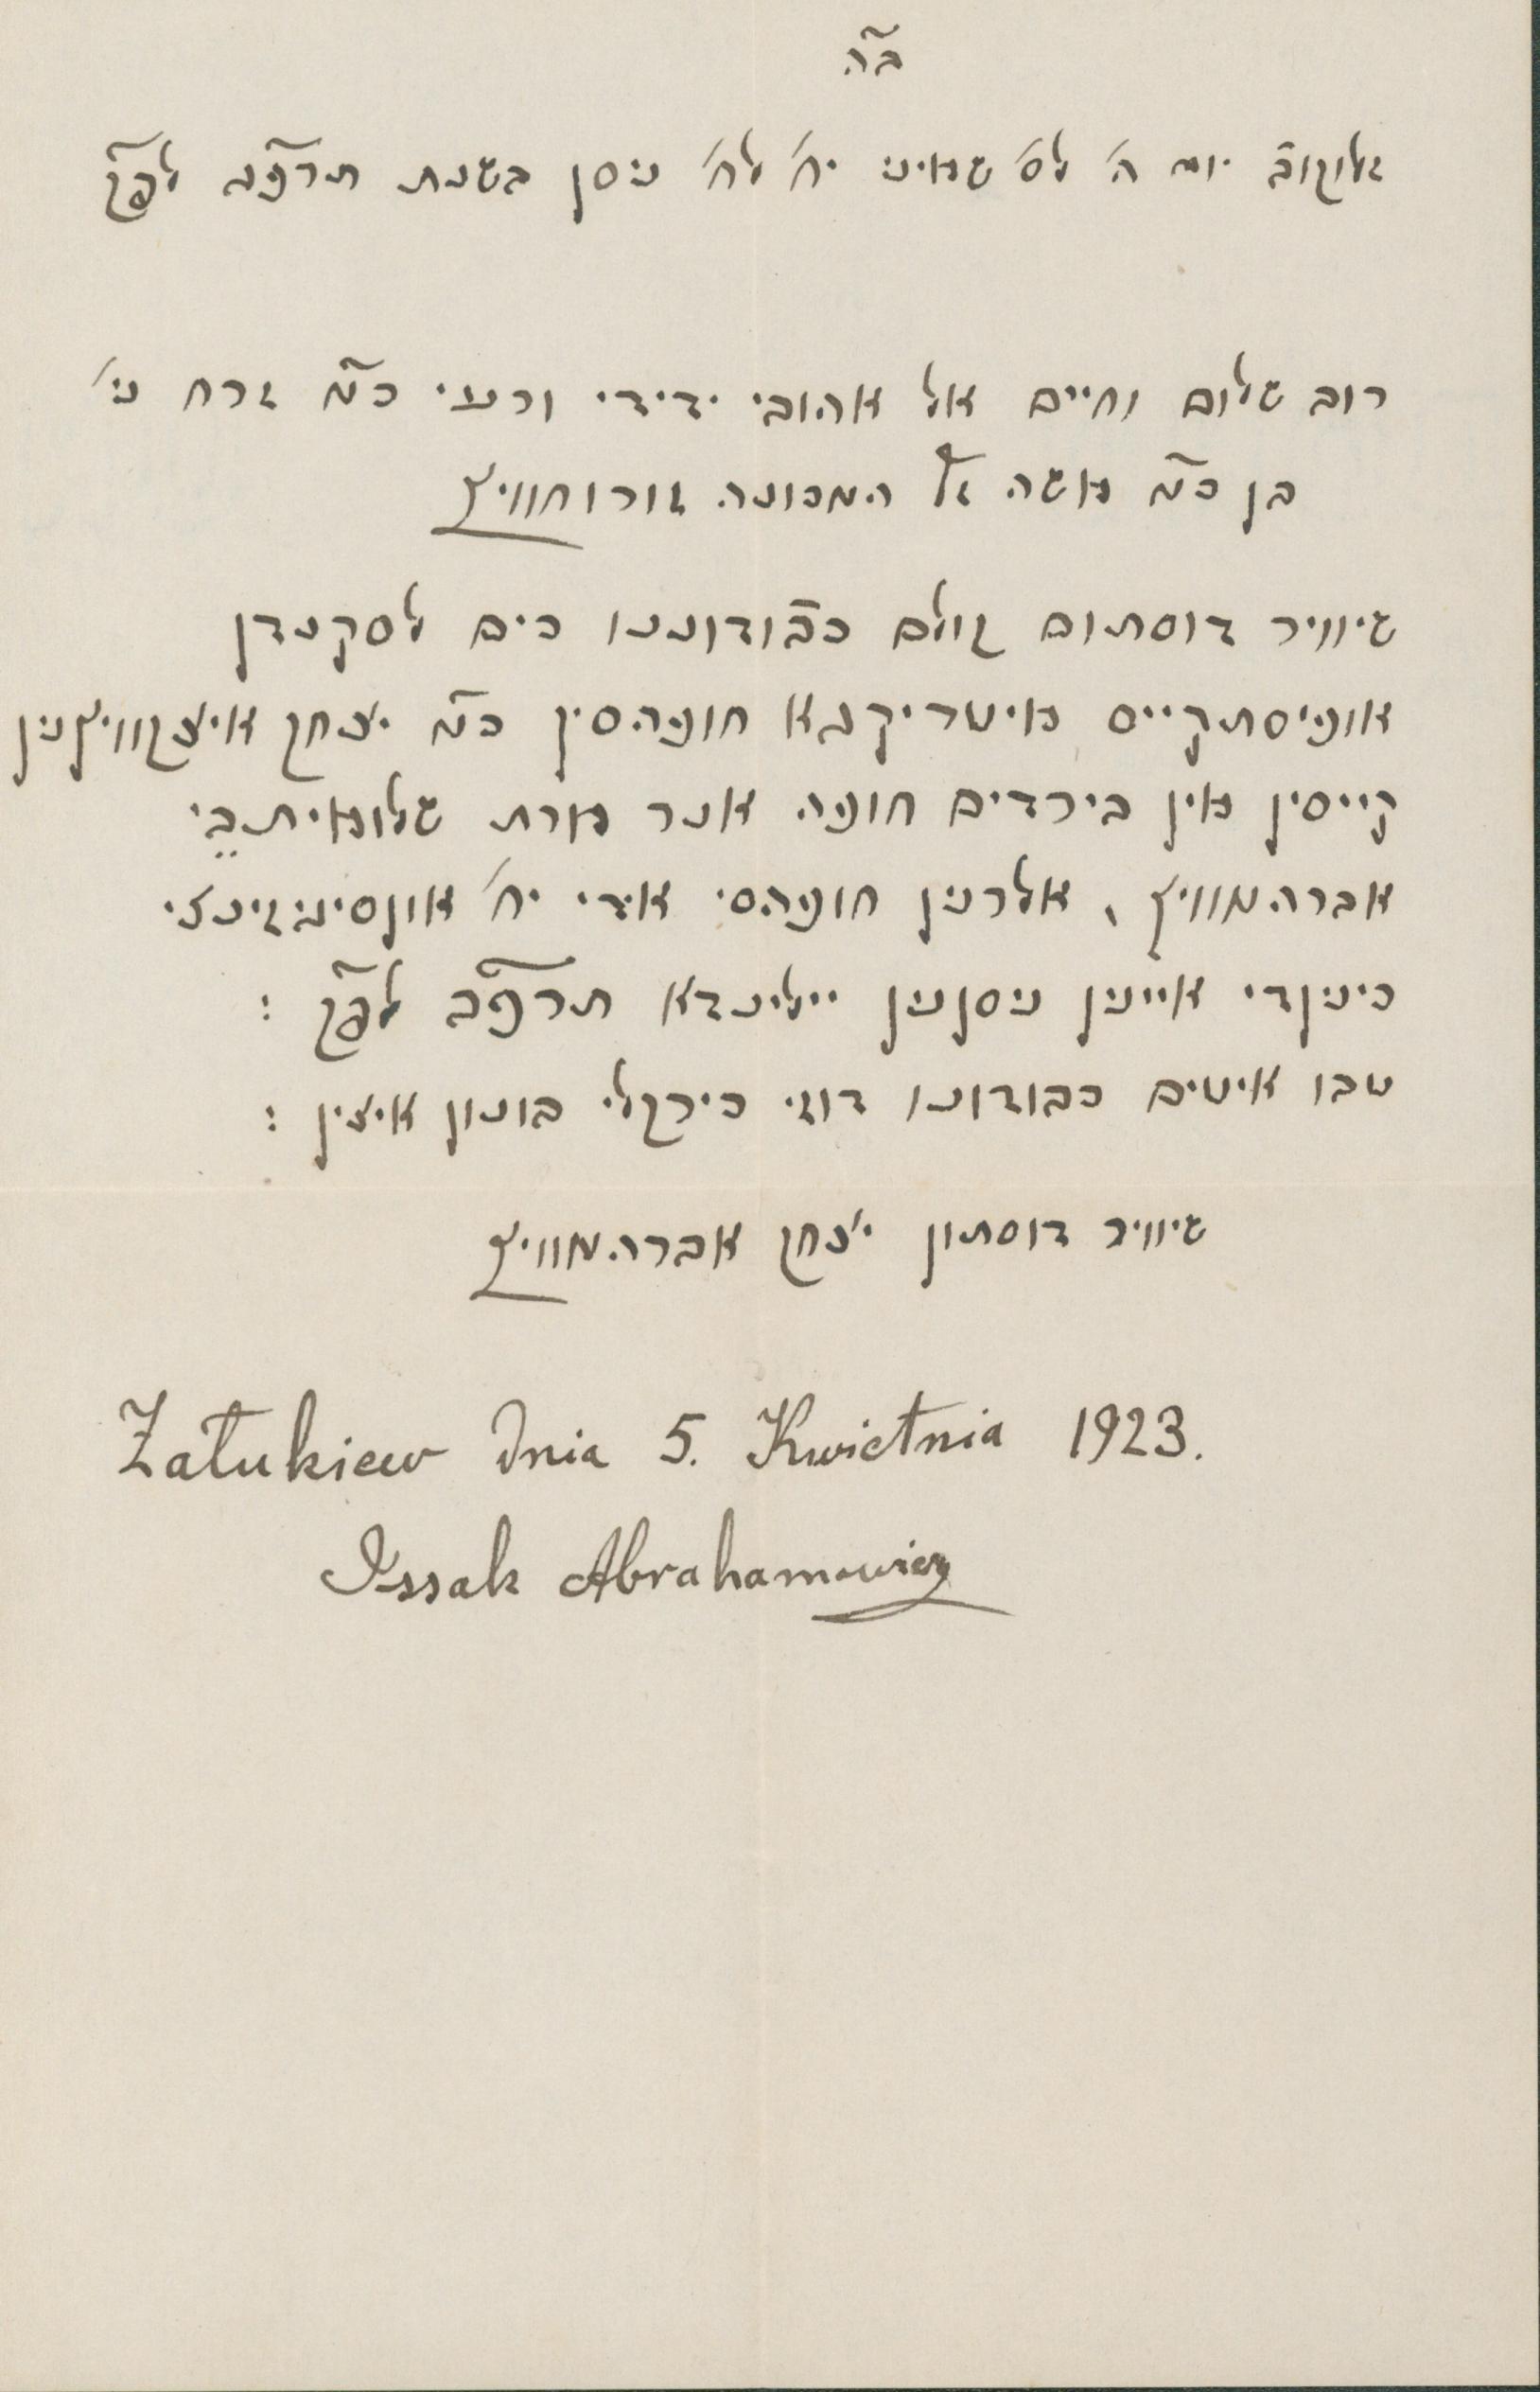 ב״ה
זלוקוב יום ה׳ לס׳ שמיני יח׳ לח׳ ניסן בשנת תרפ״ג לפ״ק
רוב שלום וחיים אל אהובי ידידי ורעי כ״מ זרח נ׳
בן כ״מ משה ז״ל המכונה זורוחוויץ
שיוויר דוסתום קולם כבודוננו כים לסקנדן
אופיסתקייס מיטריקגא חופהסין כ״מ יצחק איצקוויץנין
קייסין מין בירדים חופה אנר מרת שלומיתבי
אברהמוויץ, אלרנין חופהסי אידי יח׳ אונסיגיזינצי
כיניןדי איינין ניסןנין יילינדא תרפ״ב לפ״ק :
טבו איטים כבודונו דוגי כירקלי בונון איצין :
שיוויר דוסתון יצחק אברהמוויץ
Załukiew dnia 5. Kwietnia 1923.
Issak Abrahamowicz